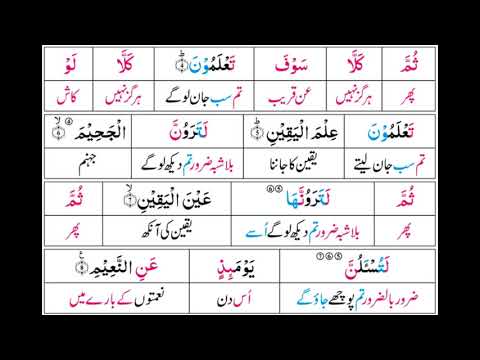 ثُمَّ كَلَّا سَوْفَ تَعْلَمُوْنَ ؕ﴿۴﴾ كَلَّا لَوْ
پھر ہرگز نہیں عن قریب تم سب جان لو گے ہرگز نہیں کاش
تَعْلَمُوْنَ عِلْمَ الْيَقِيْنِ ؕ﴿۵﴾ لَتَرَوُنَّ الْجَحِيْمَ ۙ﴿۶﴾
تم سب جان لیتے یقین کا جاننا بلاشبہ ضرور تم دیکھ لو گے جہنم
ثُمَّ لَتَرَوُنَّهَا عَيْنَ الْيَقِيْنِ ۙ﴿۷﴾ ثُمَّ
پھر بلاشبہ ضرور تم دیکھ لو گے اُسے یقین کی آنکھ پھر
لَتُسْـَٔلُنَّ يَوْمَىِٕذٍ عَنِ النَّعِيْمِ ﴿۸﴾
ضرور بالضرور تم پوچھے جاؤ گے اُس دن نعمتوں کے بارے میں